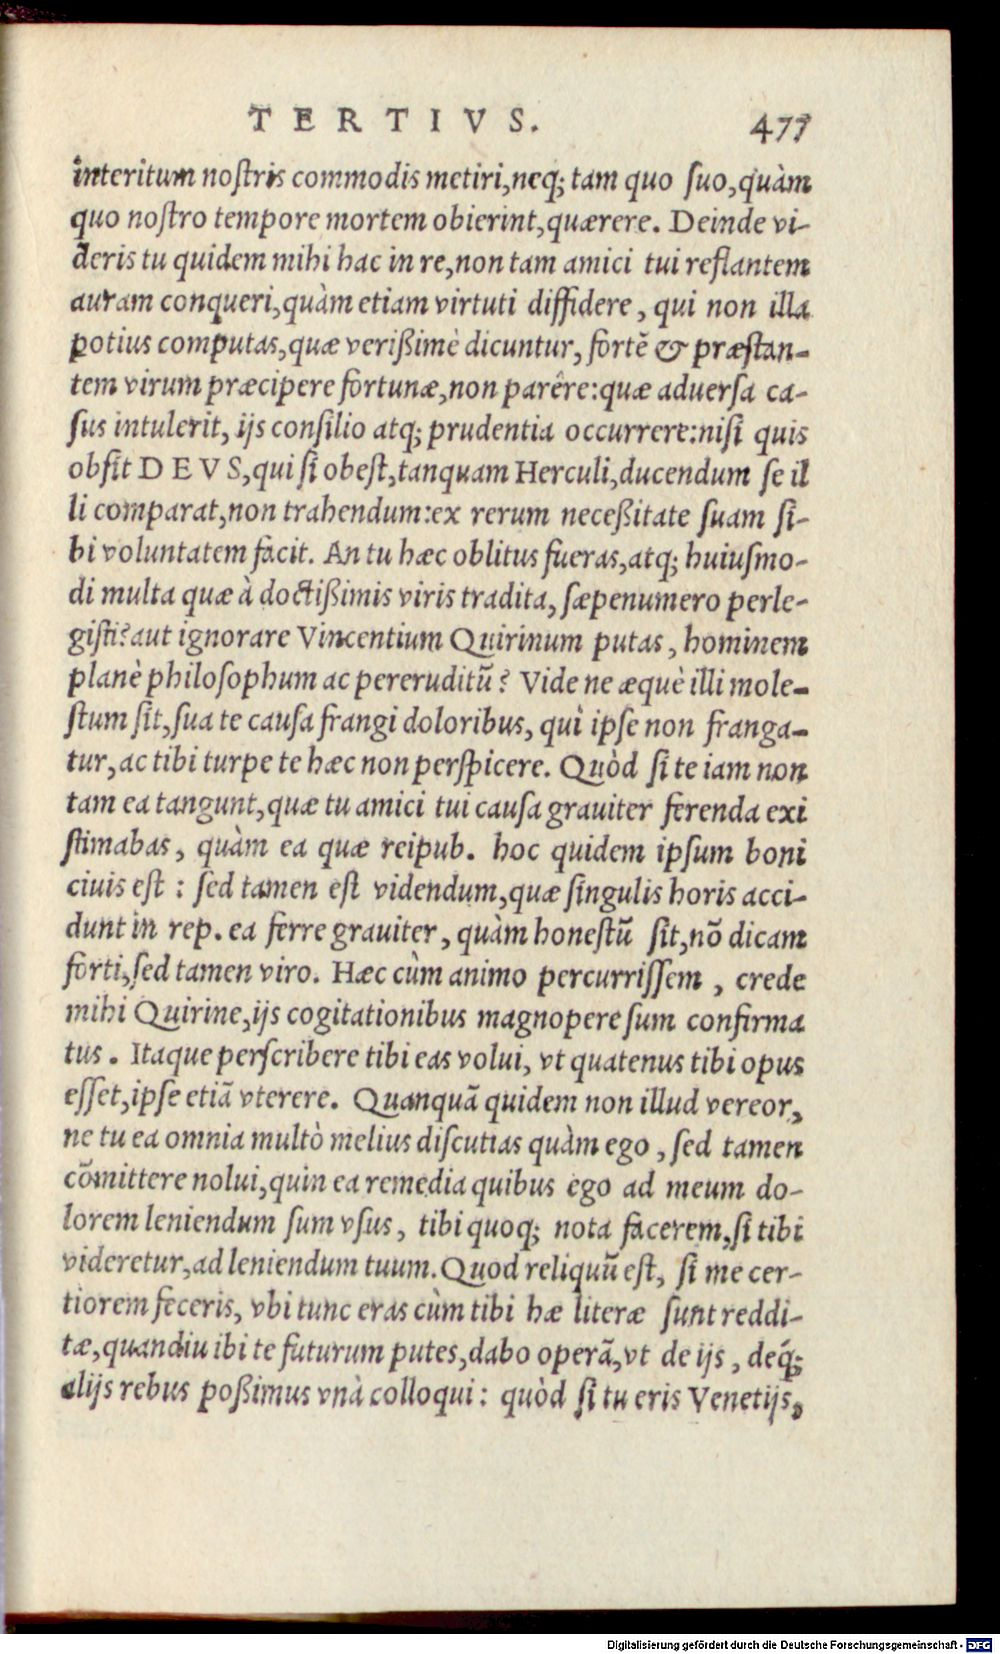 TERTIVS. 477
interitum nostris commodis metiri, neq; tam quo suo, quàm
quo nostro tempore mortem obierint, quærere. Deinde vi-
deris tu quidem mihi hac in re, non tam amici tui reflantem
auram conqueri, quàm etiam virtuti diffidere, qui non illa
potius computas, quæ verißimè dicuntur, fortē & præstan-
tem virum præcipere fortunæ, non parêre: quæ aduersa ca-
sus intulerit, ijs consilio atq; prudentia occurrere: nisi quis
obsit DEVS, qui si obest, tanquam Herculi, ducendum se il
li comparat, non trahendum: ex rerum neceßitate suam si-
bi voluntatem facit. An tu hæc oblitus fueras, atq; huiusmo-
di multa quæ à doctißimis viris tradita, sæpenumero perle-
gisti? aut ignorare Vincentium Quirinum putas, hominem
planè philosophum ac pereruditū? Vide ne æquè illi mole-
stum sit, sua te causa frangi doloribus, quì ipse non franga-
tur, ac tibi turpe te hæc non perspicere. Quòd si te iam non
tam ea tangunt, quæ tu amici tui causa grauiter ferenda exi
stimabas, quàm ea quæ reipub. hoc quidem ipsum boni
ciuis est: sed tamen est videndum, quæ singulis horis acci-
dunt in rep. ea ferre grauiter, quàm honestū sit, nō dicam
forti, sed tamen viro. Hæc cùm animo percurrissem, crede
mihi Quirine, ijs cogitationibus magnopere sum confirma
tus. Itaque perscribere tibi eas volui, vt quatenus tibi opus
esset, ipse etiā vterere. Quanquā quidem non illud vereor,
ne tu ea omnia multò melius discutias quàm ego, sed tamen
cōmittere nolui, quin ea remedia quibus ego ad meum do-
lorem leniendum sum vsus, tibi quoq; nota facerem, si tibi
videretur, ad leniendum tuum. Quod reliquū est, si me cer-
tiorem feceris, vbi tunc eras cùm tibi hæ literæ sunt reddi-
tæ, quandiu ibi te futurum putes, dabo operā, vt de ijs, deq́;
alijs rebus poßimus vnà colloqui: quòd si tu eris Venetijs,
Digitalisierung gefördert durch die Deutsche Forschungsgemeinschaft - DFG